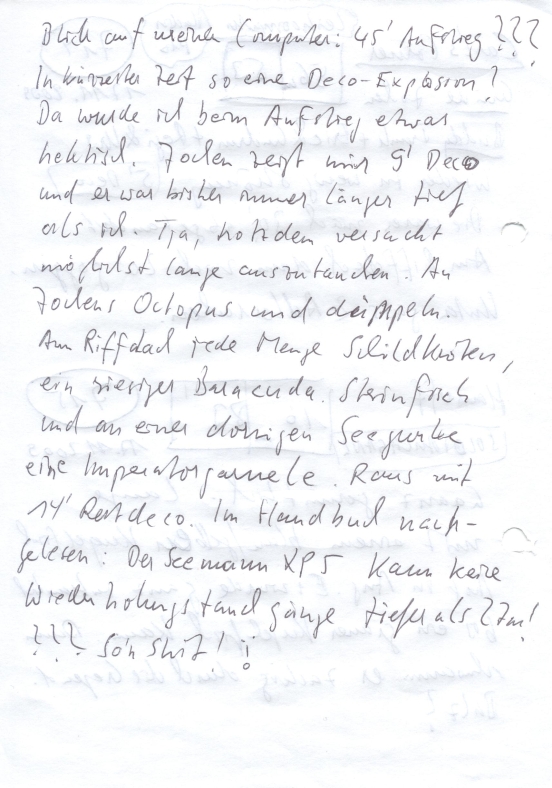 Blick auf meinen Computer: 45' Aufstieg???
In kürzester Zeit so eine Deco-Explosion?
Da wurde ich beim Aufstieg etwas
hektisch. Jochen zeigt mir 9' Deco
und er war bisher immer länger tief
als ich. Tja, trotzdem versucht
möglichst lange auszutauchen. An
Jochens Octopus und düppeln.
Am Riffdach jede Menge Schildkröten,
ein riesiger Baracuda. Steinfisch
und an einer dornigen Seegurke
eine Imperatorgarnele. Raus mit
14' Restdeco. Im Handbuch nach-
gelesen: Der Seemann XP5 kann keine
Wiederholungstauchgänge tiefer als 27m!
??? So'n Shit!!